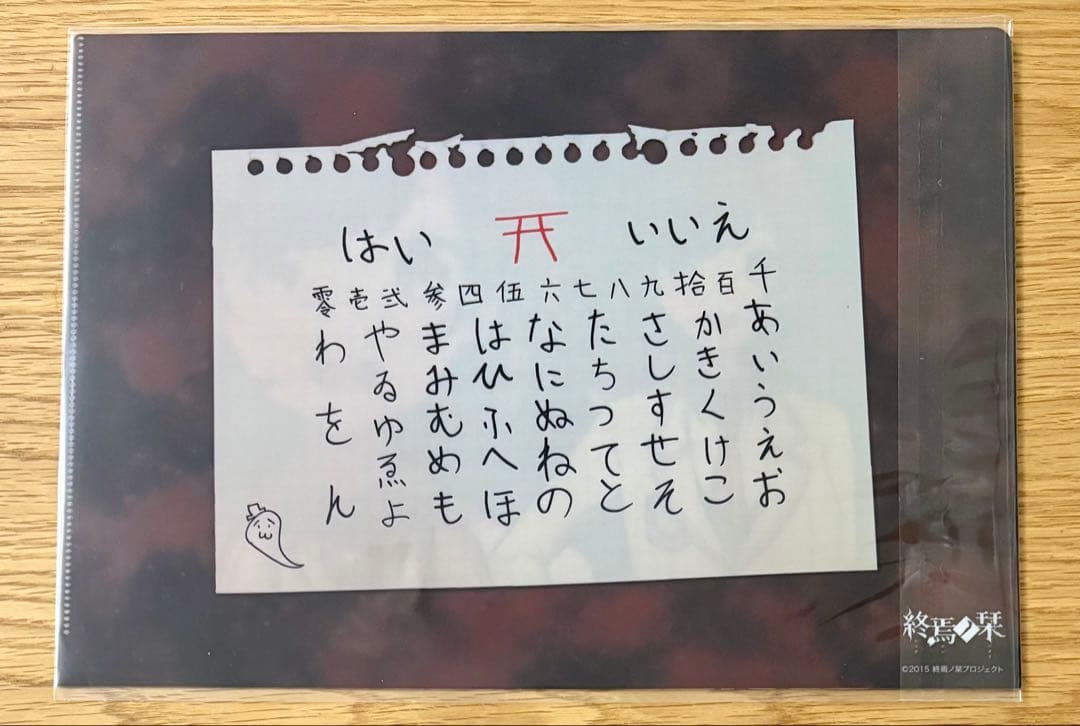 はい いいえ
零壱弐参四伍六七八九拾百千
あいうえお
かきくけこ
さしすせそ
たちつてと
なにぬねの
はひふへほ
まみむめも
やゐゆゑよ
わをん
終焉ノ栞
©2015 終焉ノ栞プロジェクト